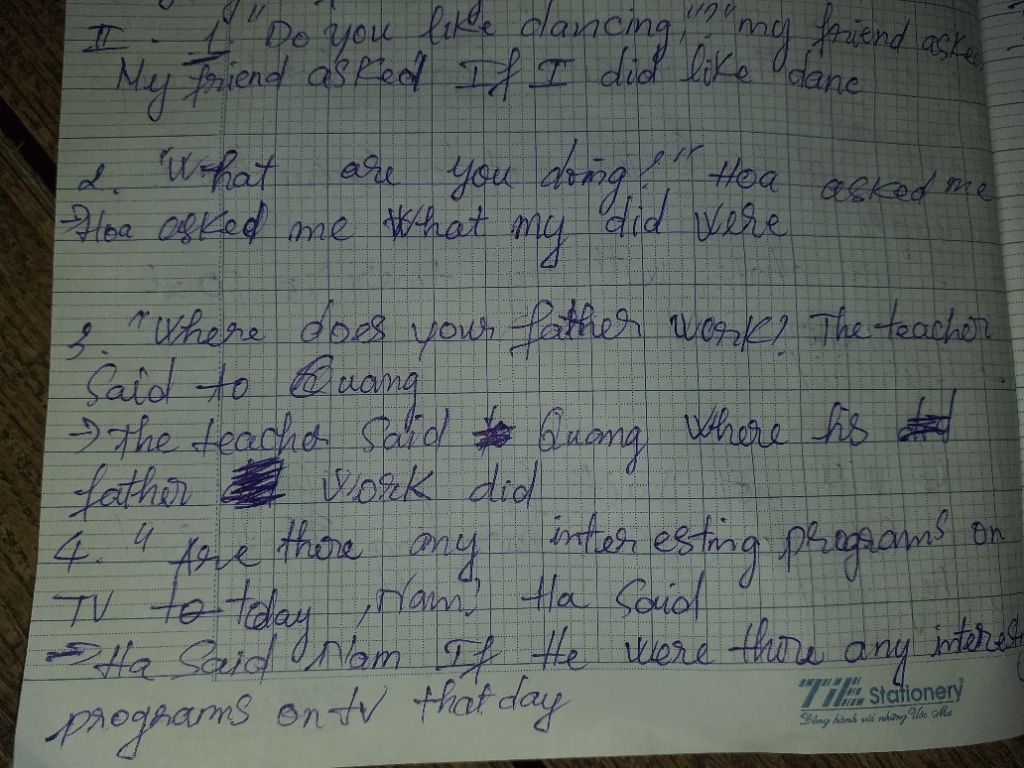 II - 1 "Do you like dancing"?" my friend asked
My friend asked If I did like danc
2. "What are you doing?" Hoa asked me
→ Hoa asked me What my did were
3. "Where does your father work? The teacher
Said to Quang
→ The teacher Said Quang where his
father work did
4. "Are there any interesting programs on
TV today, Nam? Ha Said
→ Ha Said Nam If He were there any interes
programs on tv that day
TiE Stationery
Đồng hành với những Ước Mơ